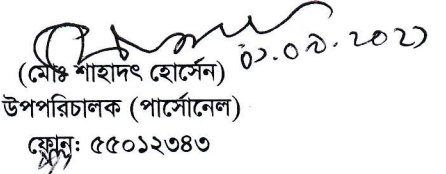 ০১.০৯.২০২১
(মোঃ শাহাদৎ হোসেন)
উপপরিচালক (পার্সোনেল)
ফোন: ৫৫০১২৩৪৩